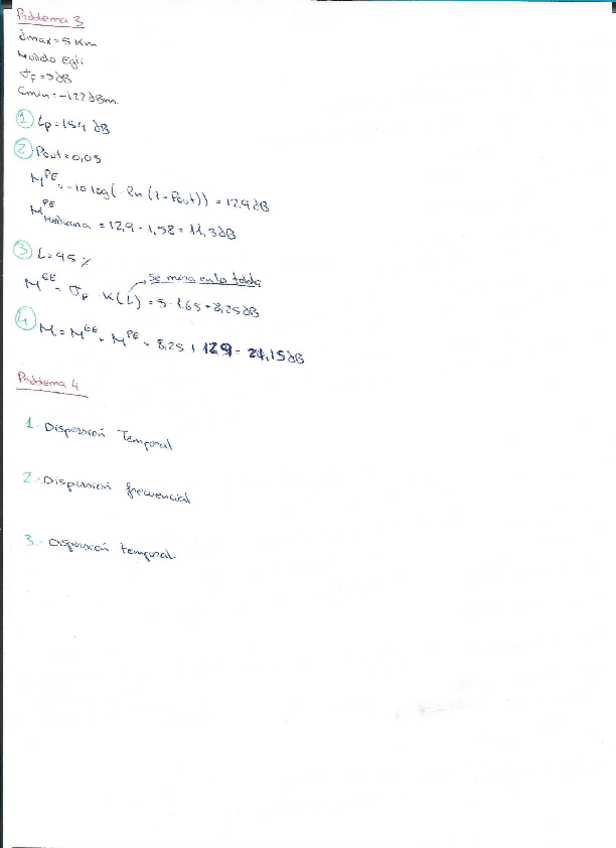 Problema 3
dmax = 5 Km
Modelo Egli
σF = 5 dB
Cmin = -122 dBm.
1 Lp = 154 dB
2 Pout = 0,05
M^PE = -10 log(-ln(1-Pout)) = 12,9 dB
M^PE mediana = 12,9 - 1,58 = 11,3 dB
3 L = 95 %
se mira en la tabla
M^GE = σF · K(L) = 5 · 1.65 = 8,25 dB
4 M = M^GE + M^PE = 8,25 + 12,9 = 21,15 dB
Problema 4
1. Dispersión Temporal
2. Dispersión frecuencial
3. Dispersión temporal.